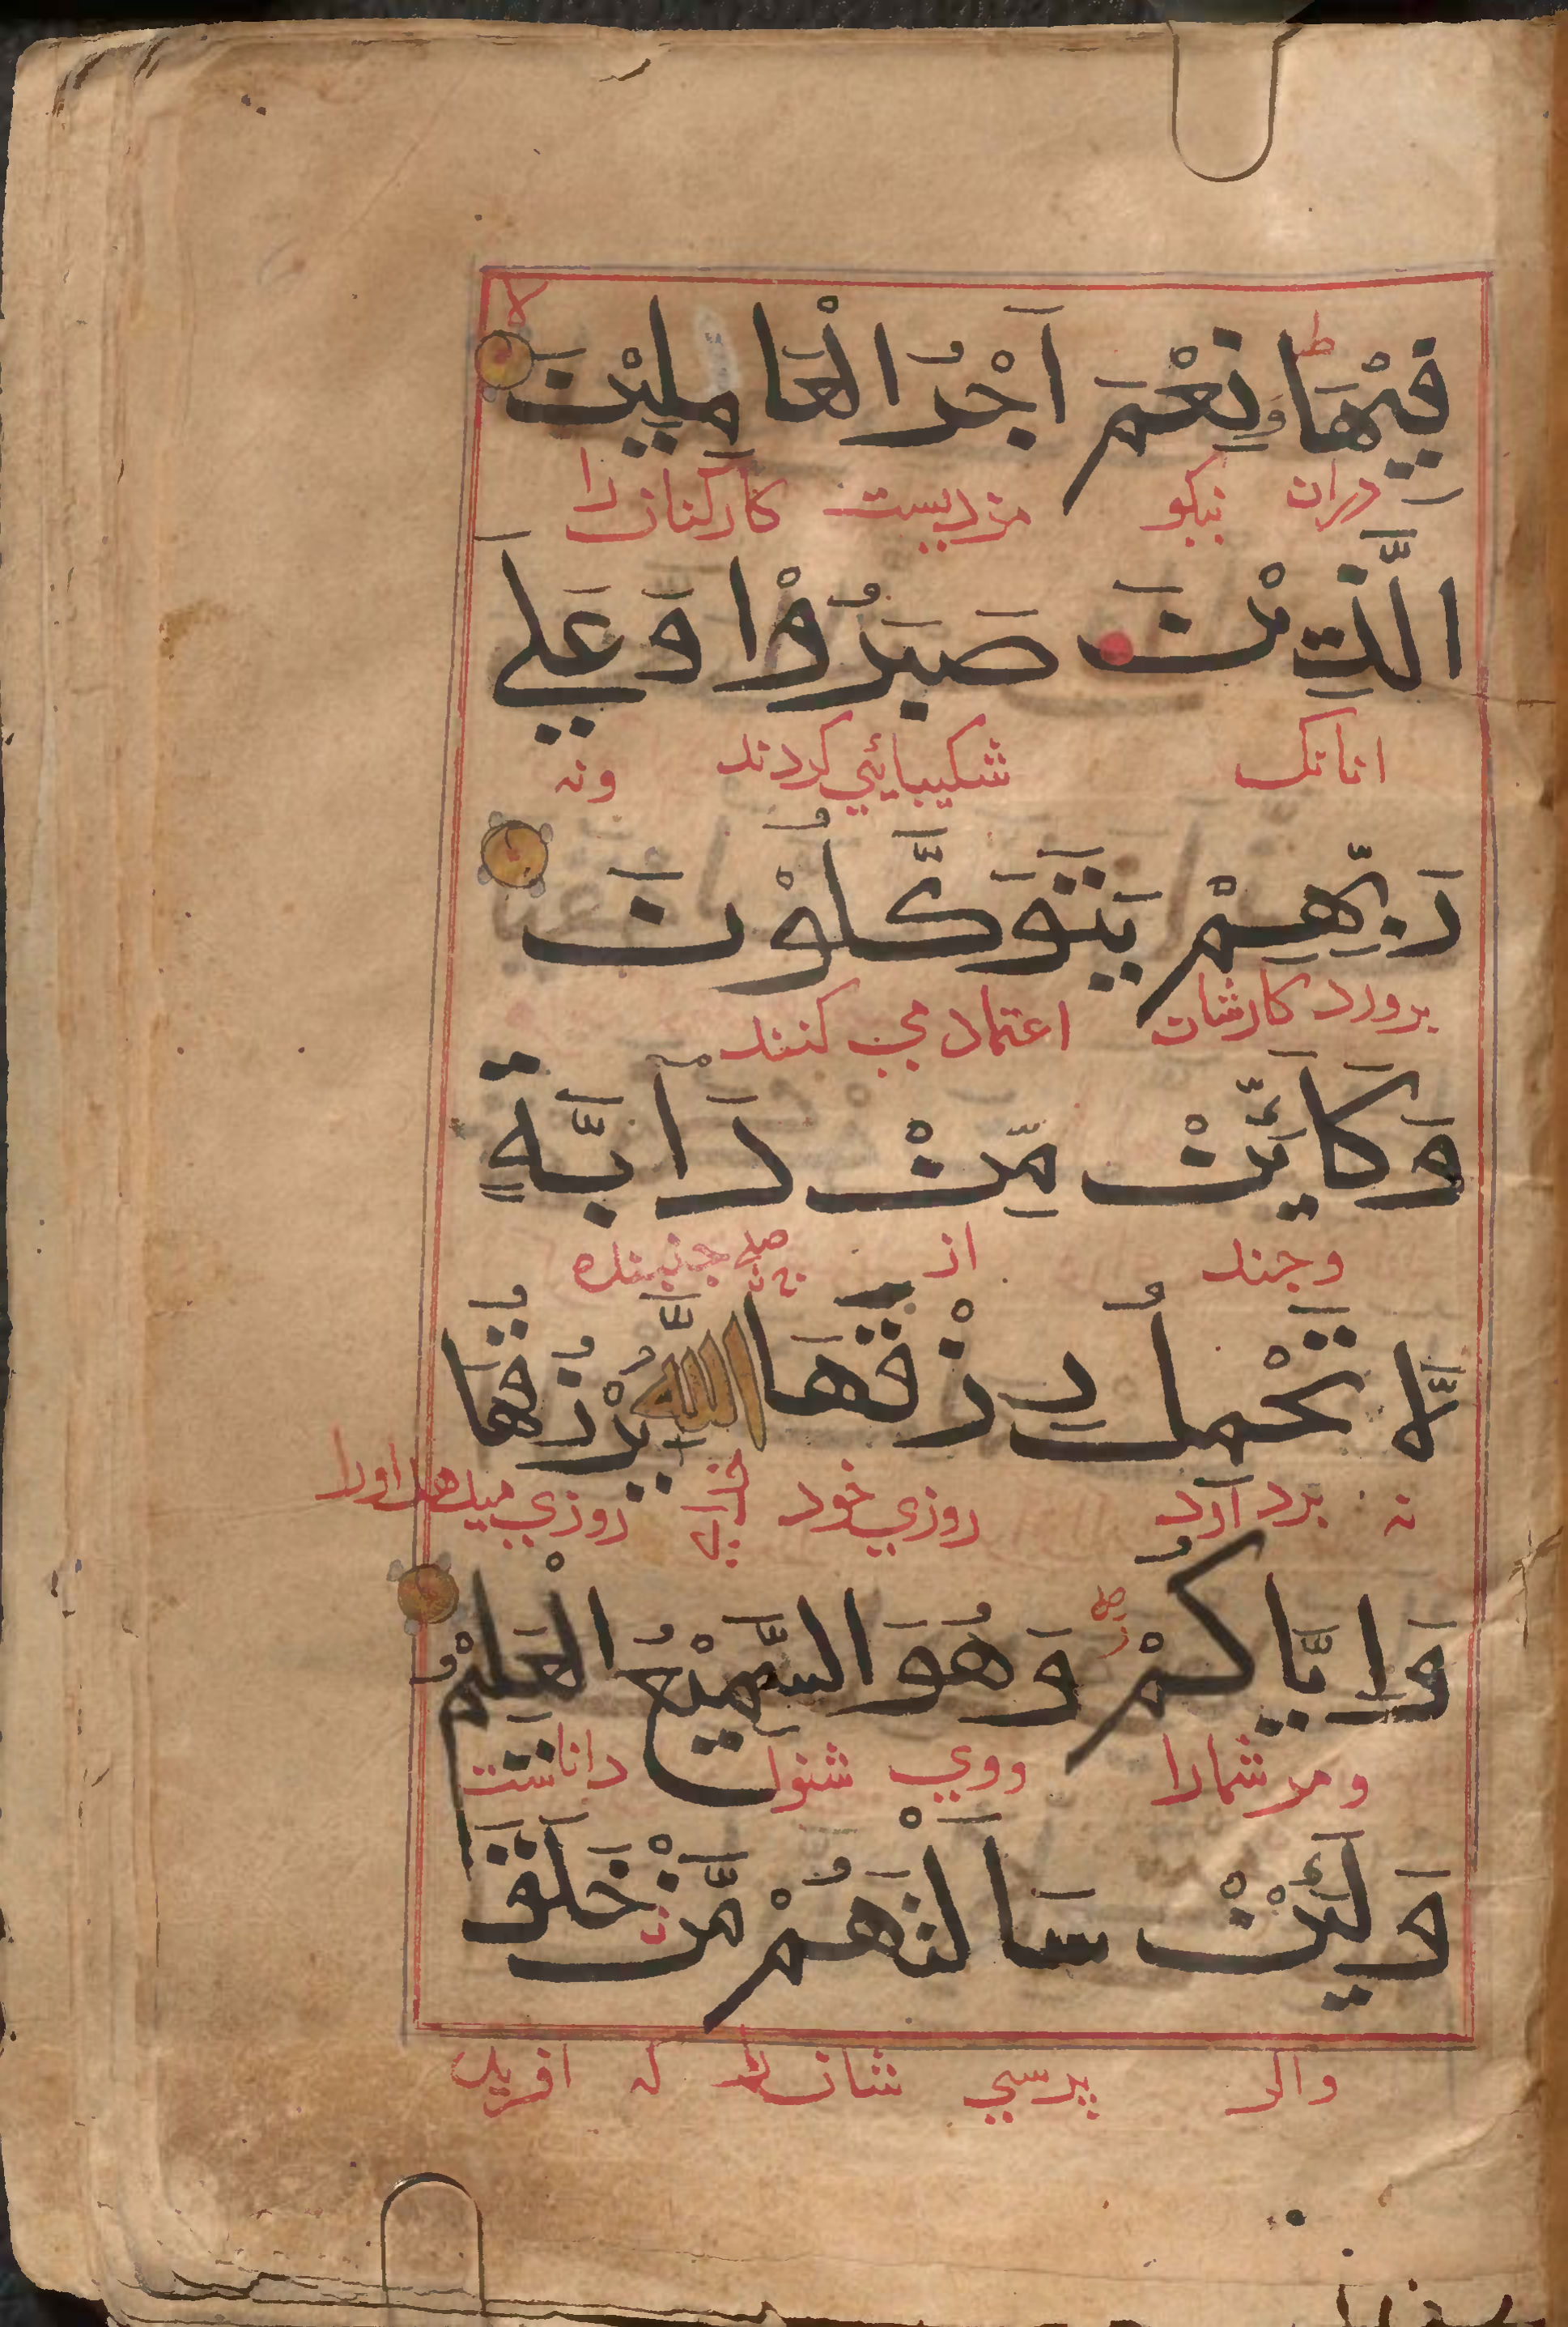 فِيْهَا وَنِعْمَ اَجْرُ الْعَامِلِيْنَ
دران نیکو مزدیست کارکنان را
الَّذِيْنَ صَبَرُوْا وَعَلي
انانک شکیبایئي کردند وبه
رَبِّهِمْ يَتَوَكَّلُوْنَ
برورد کارشان اعتماد مي کنند
وَكَاَيِّنْ مِّنْ دَآبَّةٍ
وجند از جنبنده
لَّا تَحْمِلُ رِزْقَهَا اللَّهُ يَرْزُقُهَا
نه برد آرد روزي خود روزي میدهد اورا
وَاِيَّاكُمْ وَهُوَ السَّمِيْعُ الْعَلِيْمُ
ومر شمارا ووي شنوا داناست
وَلَئِنْ سَاَلْتَهُمْ مَّنْ خَلَقَ
واکر پرسي شان را که افرید